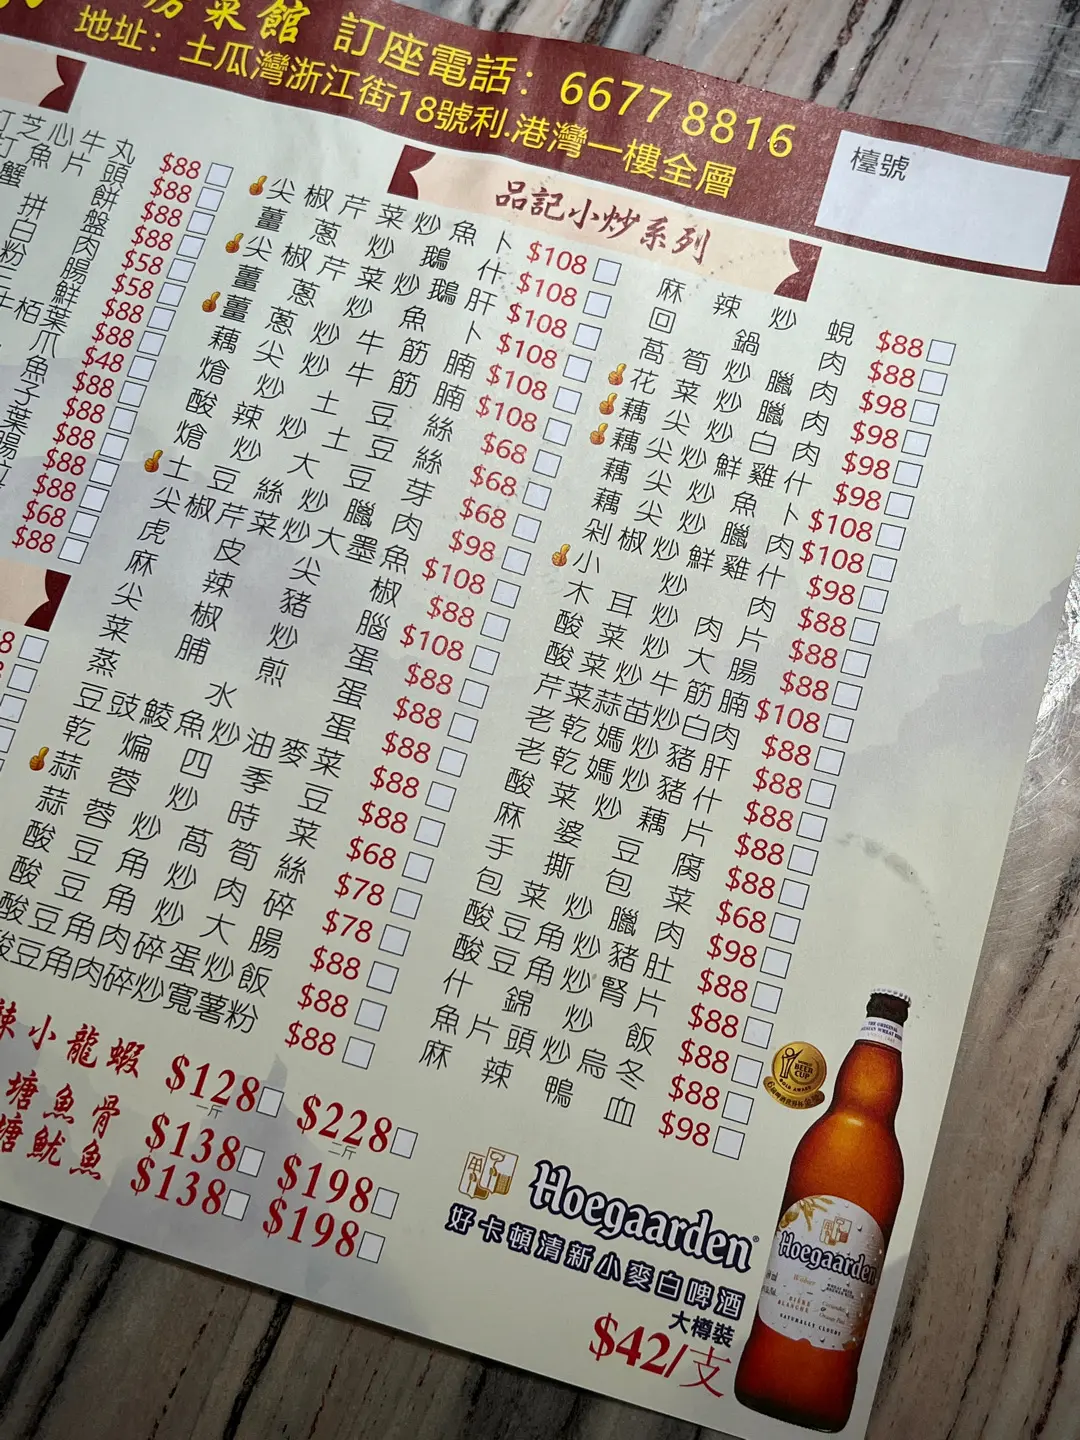 房菜館 訂座電話：6677 8816
地址：土瓜灣浙江街18號利.港灣一樓全層
檯號
$88
$88
$88
$88
$58
$58
$88
$88
$48
$88
$88
$88
$88
$88
$68
$88
尖椒芹菜炒魚卜 $108
薑蔥炒鵝什 $108
尖椒芹菜炒鵝肝 $108
薑蔥炒魚卜 $108
薑蔥炒牛筋腩 $108
藕尖炒牛筋腩 $108
熗炒土豆絲 $68
酸辣土豆絲 $68
熗炒大豆芽 $68
土豆絲炒臘肉 $98
尖椒芹菜炒大墨魚 $108
虎皮尖椒 $88
麻辣豬腦 $108
尖椒炒蛋 $88
菜脯煎蛋 $88
蒸水蛋 $88
豆豉鯪魚炒油麥菜 $88
乾煸四季豆 $88
蒜蓉炒時菜 $68
蒜蓉炒萵筍絲 $78
酸豆角炒肉碎 $78
酸豆角炒大腸 $88
酸豆角肉碎蛋炒飯 $88
酸豆角肉碎炒寬薯粉 $88
品記小炒系列
麻辣炒蜆 $88
回鍋肉 $88
萵筍炒臘肉 $98
花菜炒臘肉 $98
藕尖炒白肉 $98
藕尖炒鮮雞什 $98
藕尖炒魚卜 $108
藕尖炒臘肉 $108
剁椒炒鮮雞什 $98
小炒肉 $88
木耳炒肉片 $88
酸菜炒大腸 $88
酸菜炒牛筋腩 $108
芹菜蒜苗炒白肉 $88
老乾媽炒豬肝 $88
老乾媽炒豬什 $88
酸菜炒藕片 $88
麻婆豆腐 $88
手撕包菜 $68
包菜炒臘肉 $98
酸豆角炒豬肚 $88
酸豆角炒腎片 $88
什錦炒飯 $88
魚片頭炒烏冬 $88
麻辣鴨血 $98
辣小龍蝦 $128 一斤 $228 二斤
塘魚骨 $138 $198
塘魷魚 $138 $198
Hoegaarden
好卡頓清新小麥白啤酒
大樽裝
$42/支
BEER CUP
Hoegaarden